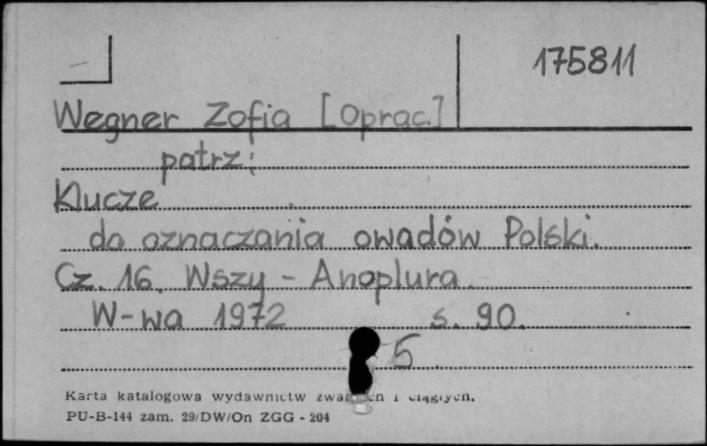 175811
Wegner Zofia [Oprac.]
patrz:
Klucze
do oznaczania owadów Polski.
Cz. 16. Wszy - Anoplura.
W-wa 1972 s. 90.
5
Karta katalogowa wydawnictw i ciągłych.
PU-B-144 zam. 29/DW/On ZGG - 204